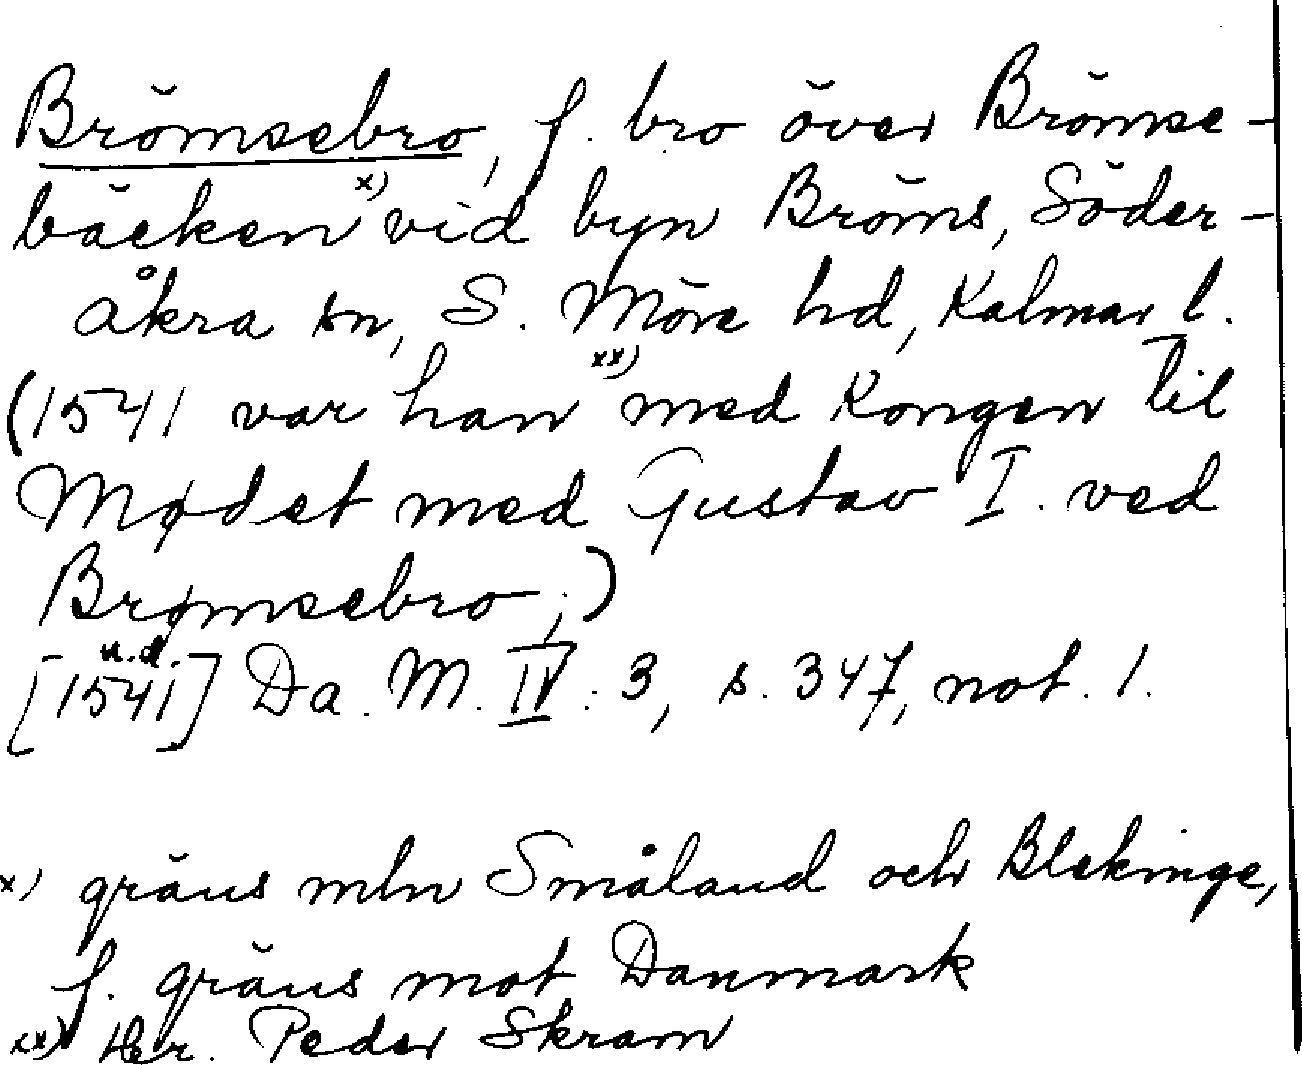 Brömsebro, f. bro över Brömse-
bäcken x) vid byn Bröms, Söder-
åkra sn, S. Möre hd, Kalmar l.
(1541 var han xx) med Kongen til
Mødet med Gustav I. ved
Brømsebro,;)
[1541] u.d. Da. M. IV. 3, s. 347, not. 1.
x) gräns mln Småland och Blekinge,
f. gräns mot Danmark
xx) Her. Peder Skram